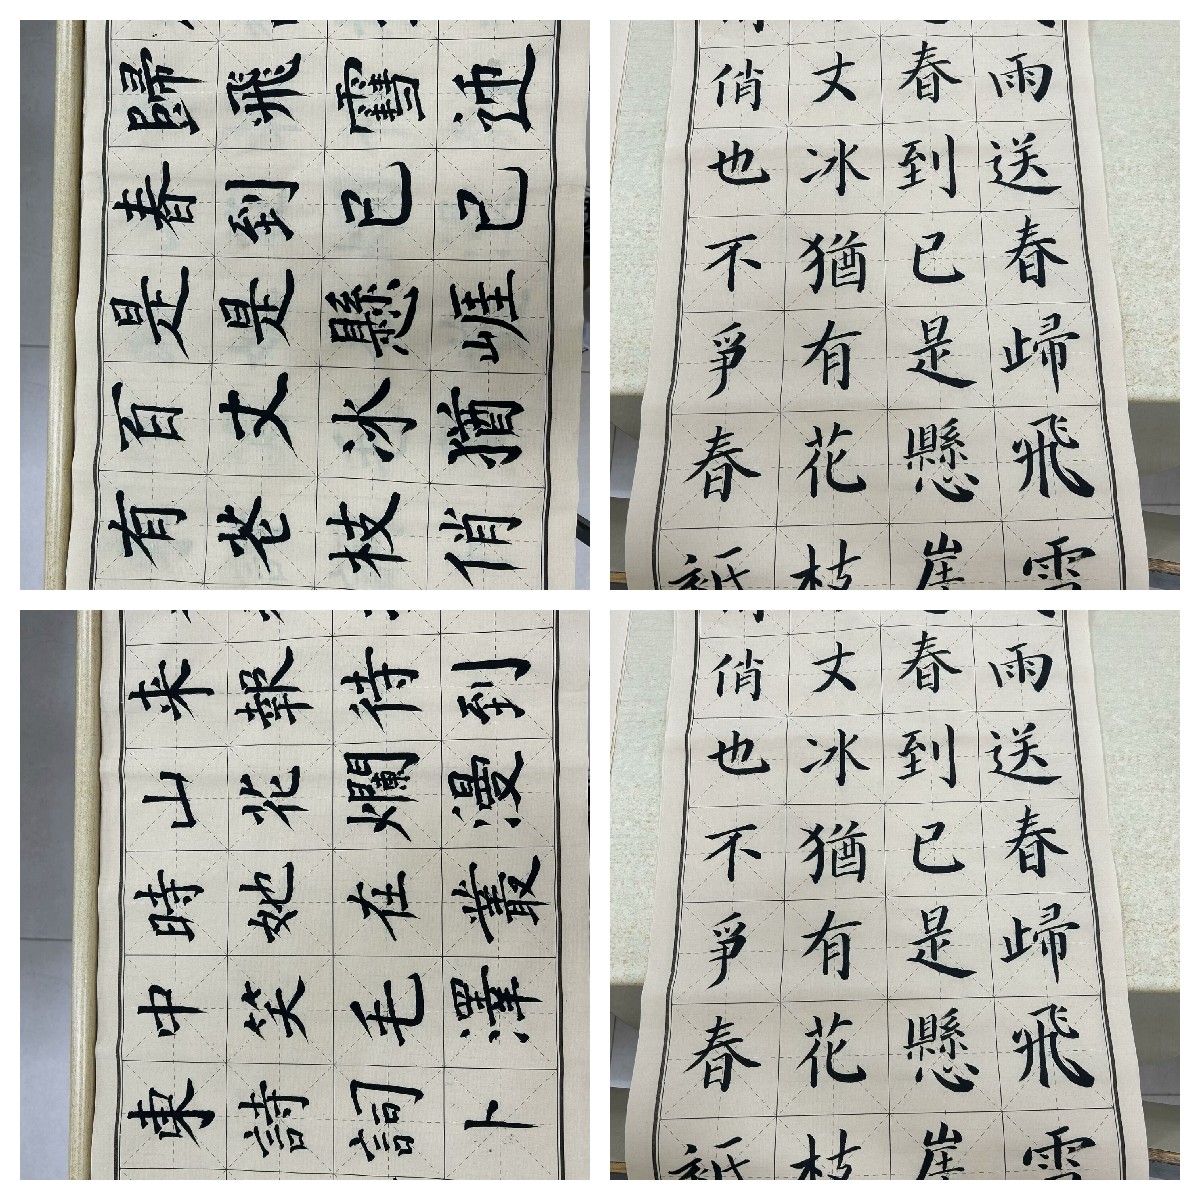 歸飛雪迎
春到已已
是是懸崖
百丈冰猶
有花枝俏
雨送春歸飛雪
春到已是懸崖
丈冰猶有花枝
俏也不爭春祇
来報待到
山花爛漫
時她在叢
中笑毛澤
東詩詞卜
雨送春歸飛雪
春到已是懸崖
丈冰猶有花枝
俏也不爭春祇